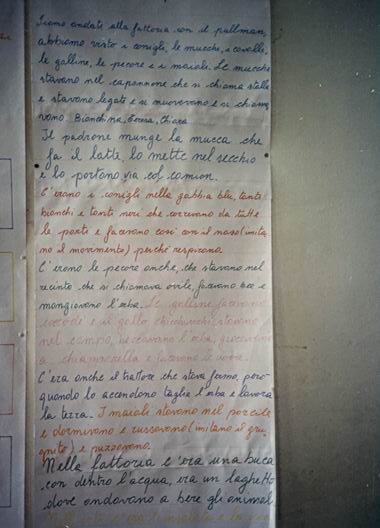 Siamo andati alla fattoria con il pullman,
abbiamo visto i conigli, le mucche, i cavalli,
le galline, le pecore e i maiali. Le mucche
stavano nel capannone che si chiama stalla
e stavano legate e si muovevano e si chiama
vano. Bianchina, Teresa, Chiara
Il padrone munge la mucca che
fa il latte, lo mette nel secchio
e lo portano via col camion.
C'erano i conigli nella gabbia blu, tanti
bianchi e tanti neri che correvano da tutte
le parti e facevano così con il naso (imita
no il movimento) perché respirano.
C'erano le pecore anche, che stavano nel
recinto che si chiamava ovile, facevano bee e
mangiavano l'erba. Le galline facevano
coccodè e il gallo chicchirichi, stavano
nel campo, beccavano l'erba, giocavano
a chiapparella e facevano le uova.
C'era anche il trattore che stava fermo, però
quando lo accendono taglia l'erba e lavora
la terra. I maiali stavano nel porcile
e dormivano e russavano (imitano il gru
gnito) e puzzavano.
Nella fattoria c'era una buca
con dentro l'acqua, era un laghetto
dove andavano a bere gli animal